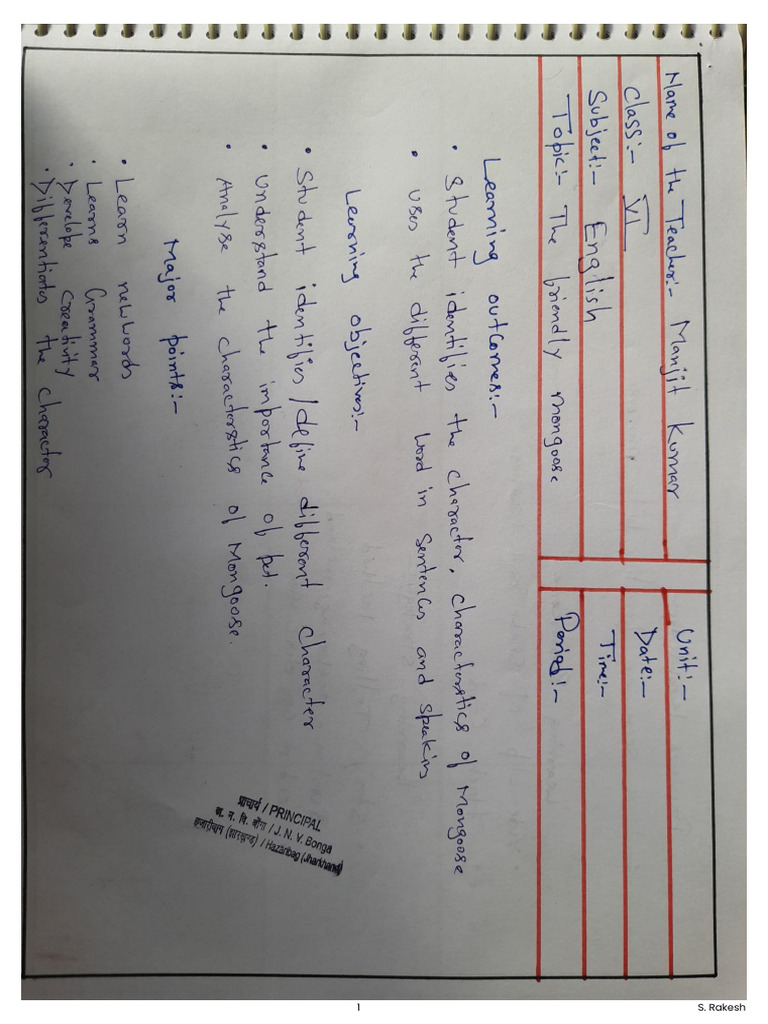 Name of the Teacher:- Manjit Kumar
Unit:-
Class:- VI
Date:-
Subject:- English
Time:-
Topic:- The friendly mongoose
Period:-
Learning outcomes:-
• Student identifies the character, characterstics of Mongoose
• Uses the different word in sentences and speaking
Learning objectives:-
• Student identifies/define different character
• Understand the importance of pet.
• Analyse the characterstics of Mongoose.
Major points:-
• Learn new words
• Learns Grammar
• Develope creativity
• Differentiates the character
प्राचार्य / PRINCIPAL
ज. न. वि. बोंगा / J. N. V. Bonga
हजारीबाग (झारखण्ड) / Hazaribag (Jharkhand)
1
S. Rakesh